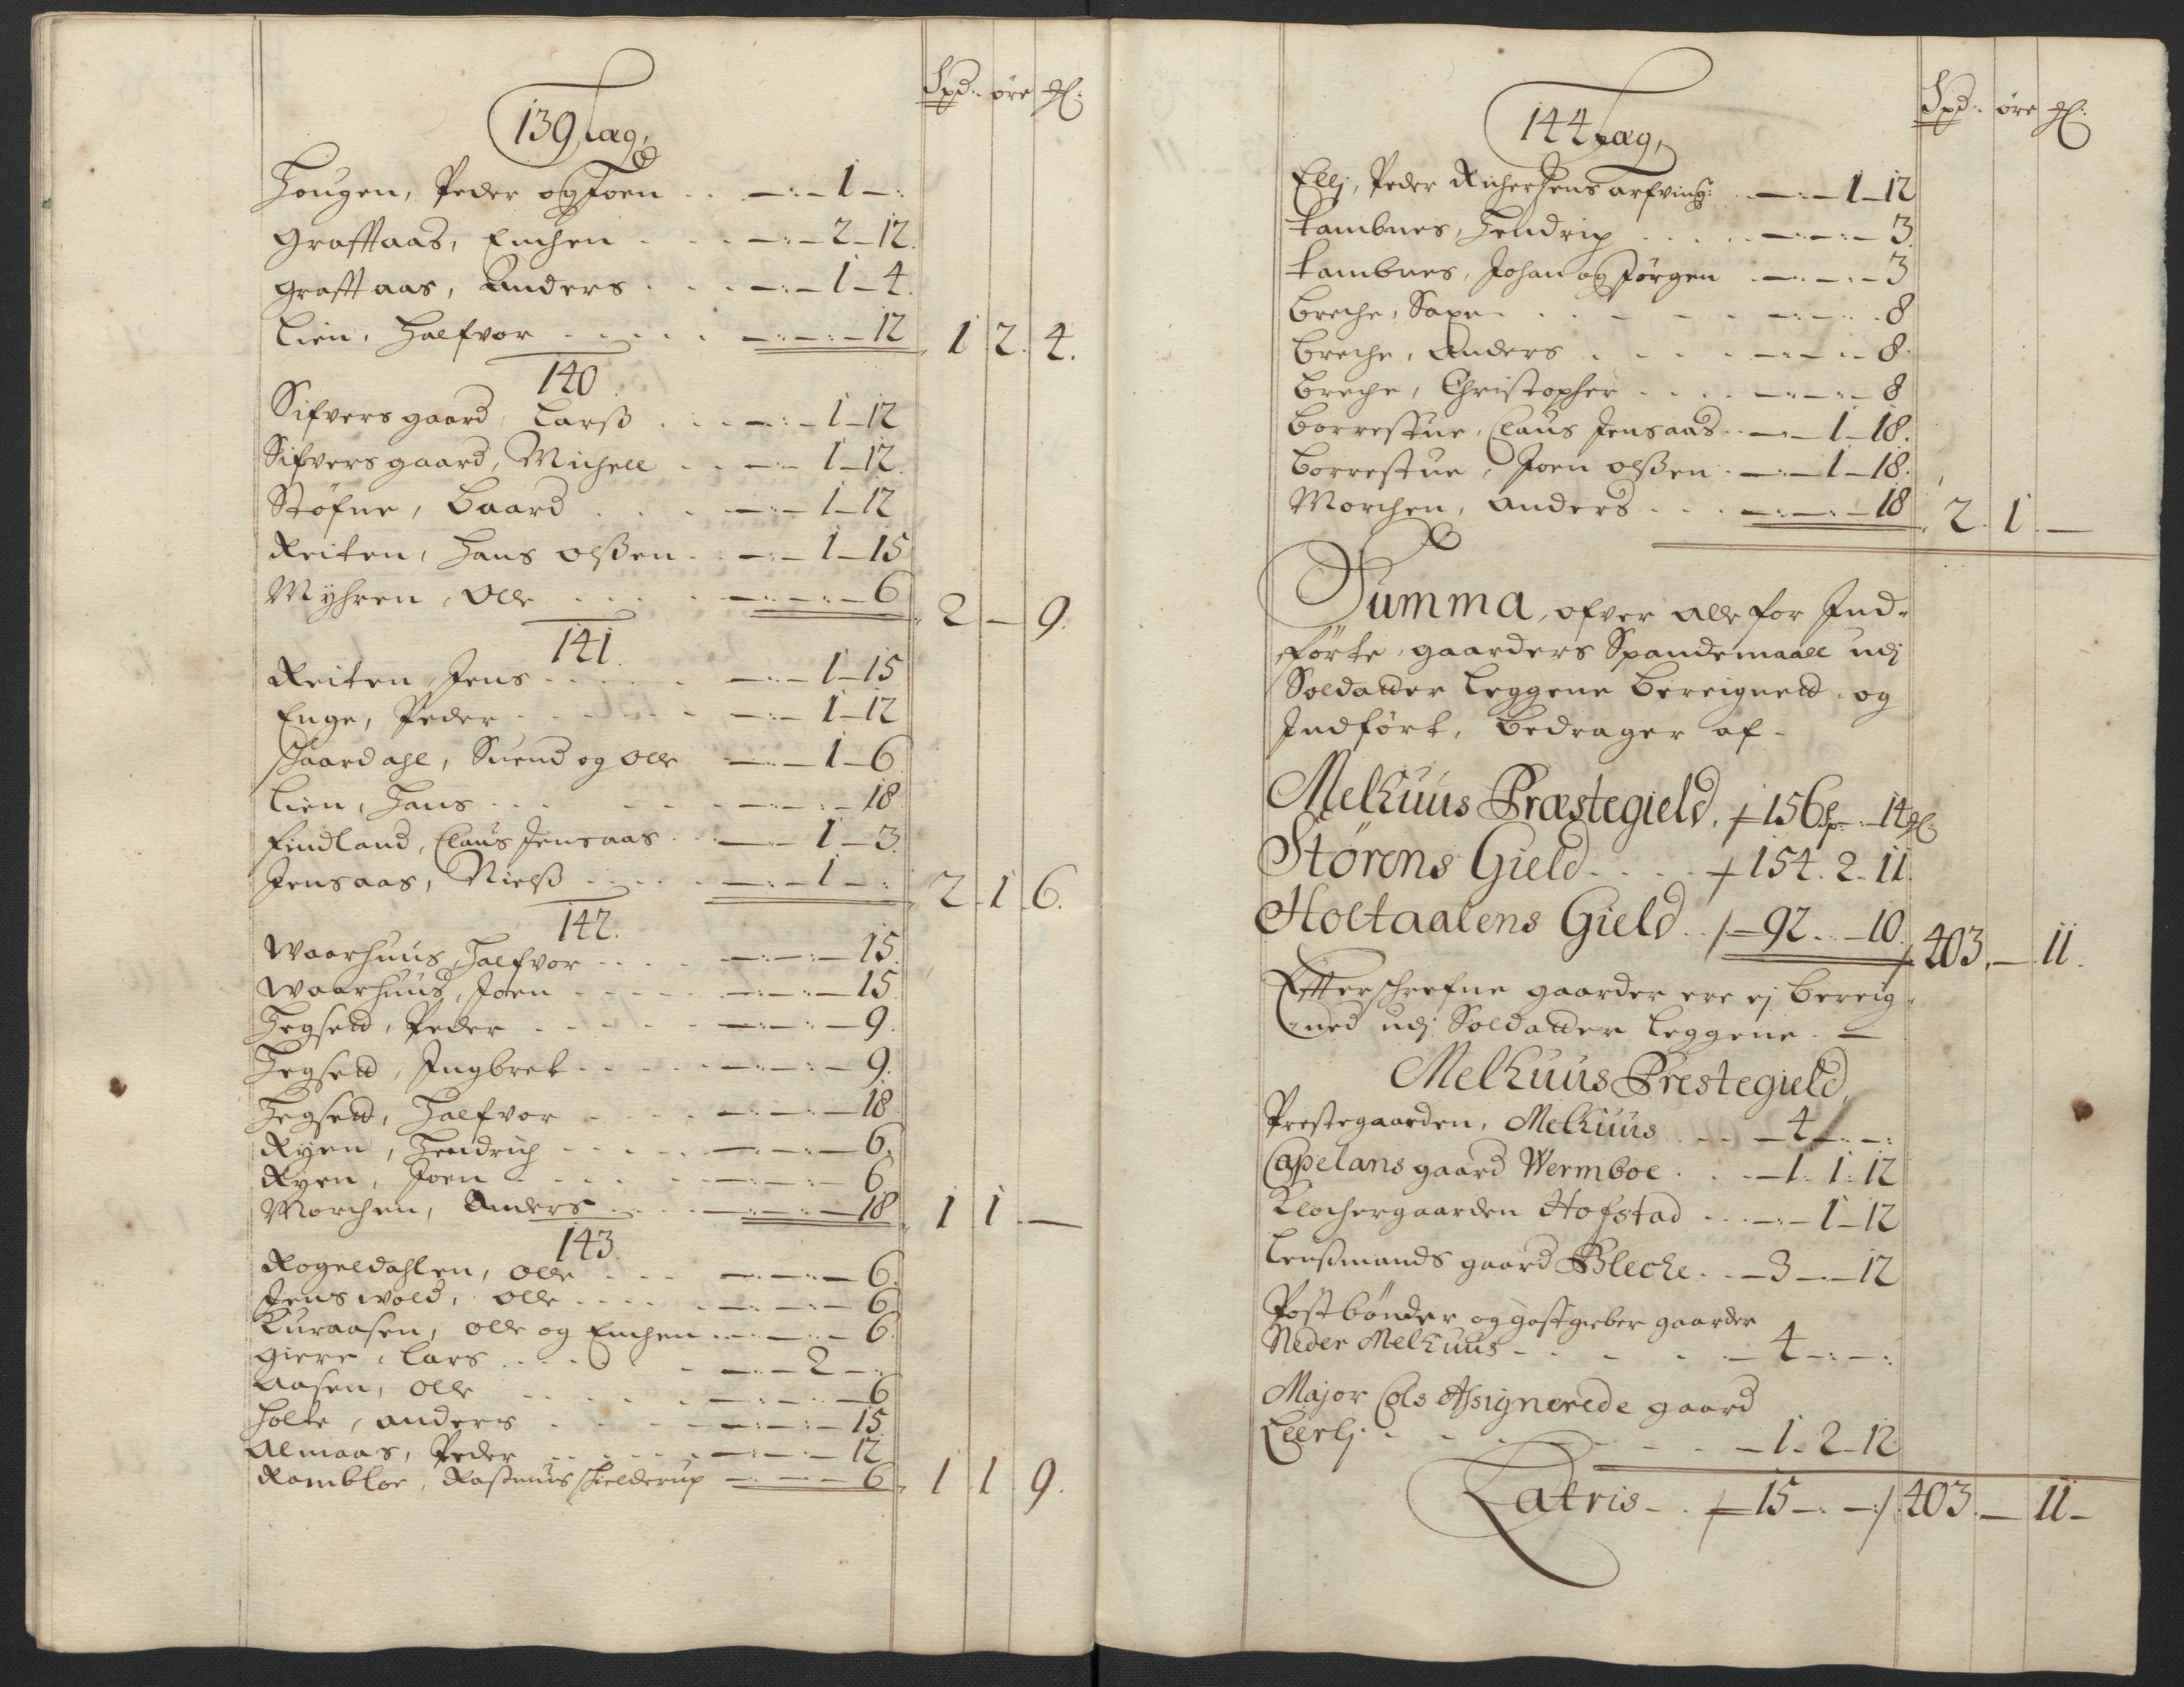 Spd: øre
139 Læg,
Hougen, Peder og Joen . . —:—1—:
Graftaas, Enchen . . . —:—2—12.
Graftaas, Anders . . . —:—1—4.
Lien, Halfvor . . . . —:—:—12 1. 2. 4.
140
Sifversgaard, Larss . . . —:—1—12
Sifversgaard, Michell . . —:—1—12.
Støfne, Baard . . . . —:—1—12
Reiten, Hans olssen . . —:—1—15
Myhren, Olle . . . . —:—:—6 2 — 9.
141.
Reiten, Jens . . . . . —:—1—15
Enge, Peder . . . . . —:—1—12
Schaardahl, Suend og Olle —:—1—6
Lien, Hans . . . . . . —:—:—18
Findland, Claus Jensaas . . —:—1—3.
Jensaas, Nielss . . . . —:—1—: 2. 1. 6.
142.
Waarhuus, Halfvor . . . —:—:—15.
Waarhuus, Joen . . . . —:—:—15.
Hegsetd, Peder . . . . . —:—:—9.
Hegsetd, Ingbret . . . . —:—:—9.
Hegsetd, Halfvor . . . . —:—:—18
Ryen, Hendrich . . . . —:—:—6.
Ryen, Joen . . . . . . —:—:—6.
Morchen, Anders . . . . —:—:—18 1 1. —
143.
Rogeldahlen, Olle . . . —:—:—6.
Jenswold, Olle . . . . . —:—:—6
Kuraasen, Olle og Enchen . . —:—:—6.
Giere, Lars . . . . . —:—2—:
Aasen, Olle . . . . . —:—:—6
Holte, Anders . . . . —:—:—15.
Almaas, Peder . . . . —:—:—12
Rambloe, Rasmus Schielderup —:—:—6. 1 1. 9.
Spd: øre
144 Læg,
Ellj, Peder Richertsens arfving: . —:—1—12
Tambnes, Hendrich . . . . —:—:—3.
Tambnes, Johan og Jørgen . —:—:—3
Breche, Saxe . . . . . —:—:—8
Breche, Anders . . . . —:—:—8.
Breche, Christopher . . . —:—:—8
Borrestue, Claus Jensaas . . —:—1—18.
Borrestue, Joen olssen . —:—1—18.
Morchen, Anders . . . —:—:—18 2. 1. —
Summa, ofver alle for Ind-
førte gaarders Spandemaall udj
Soldatder Leggene bereignetd og
Indført, bedrager af -
Melhuus Præstegield, 156 sp —:14
Størens Gield . . . . 154. 2. 11.
Holtaalens Gield . . —92. —10. 403. — 11.
Efterschrefne gaarder ere ej bereig-
ned udj Soldatder Leggene. —
Melhuus Prestegield,
Prestegaarden, Melhuus . . . —4—:—:
Capelans gaard Wermboe . . . —1. 1. 12
Klochergaarden Hofstad . . . —:—1—12
Lenssmands gaard Bleche . . —3—:—12
Postbønder og gastgieber gaarder
Neder Melhuus - . . . . —4—:—:
Major Cols Assignerede gaard
Ellerlj . . . . . . . . —1. 2—12
Latris . . 15—:—:/. 403. — 11 —